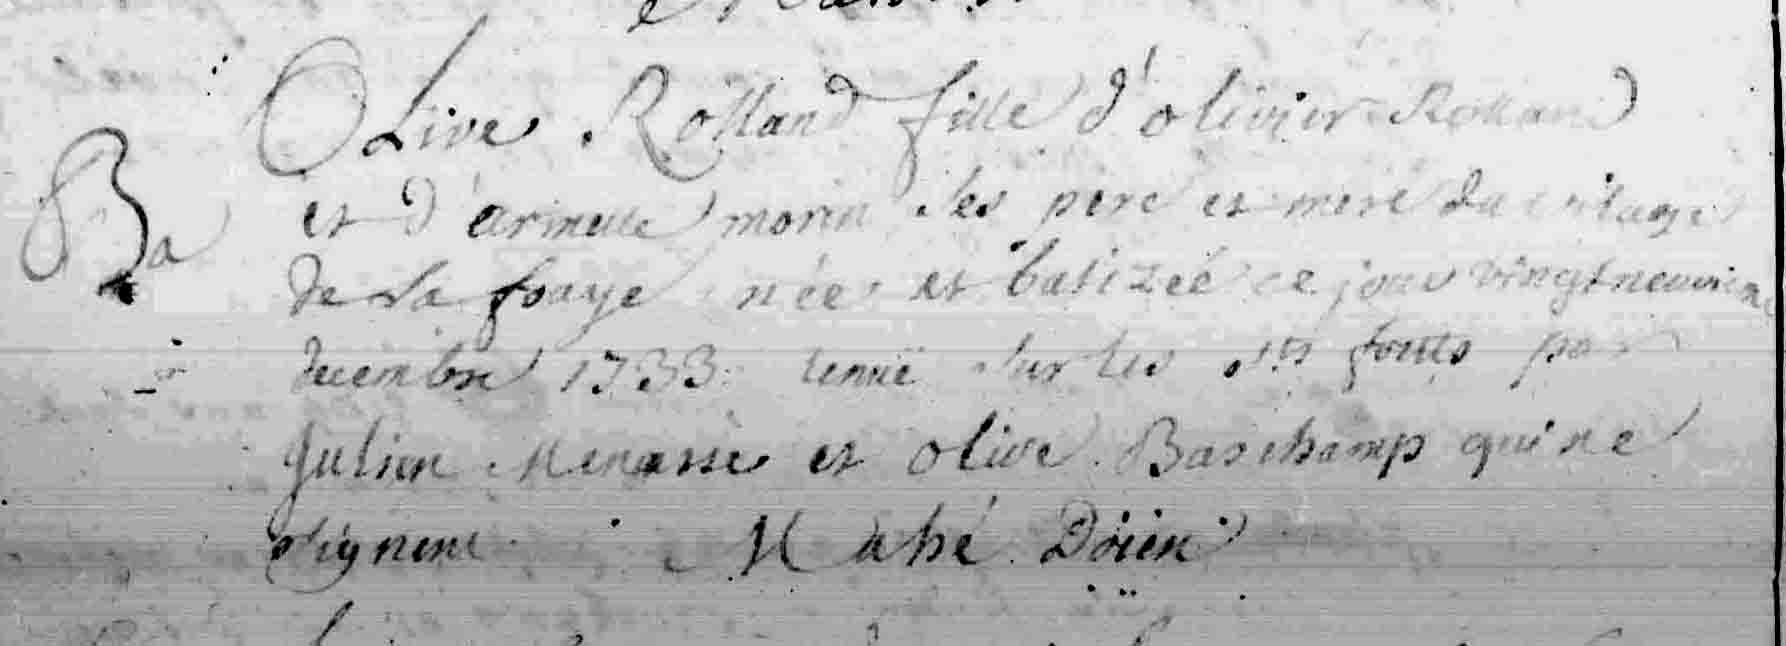 Olive Rolland fille d'olivier Rolland
Ba
et d'armelle morin ses pere et mere du vilage
de la fraye née et batizée ce jour vingtneuvieme
decembre 1733 tenuë sur les sts fonts par
Julien Menasse et olive Baschamp qui ne
signent Mahé Doien